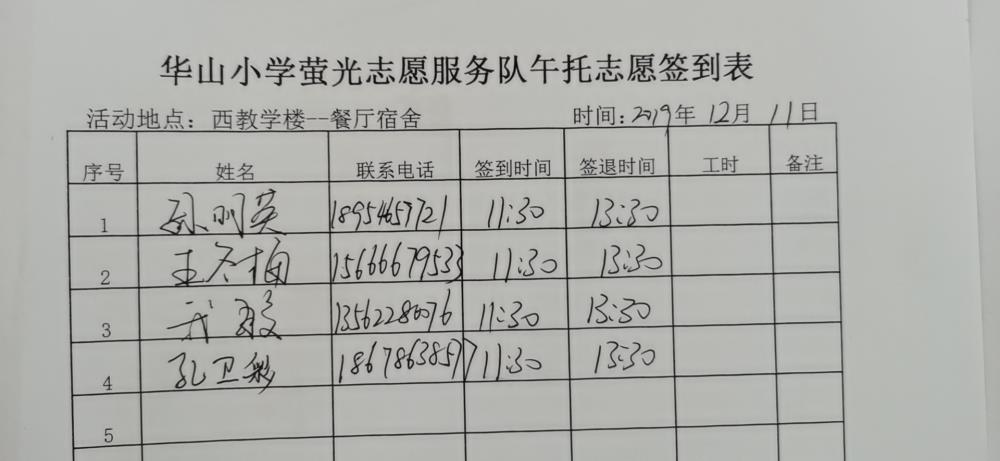 华山小学萤光志愿服务队午托志愿签到表
活动地点：西教学楼--餐厅宿舍 时间：2019年12月11日
序号 姓名 联系电话 签到时间 签退时间 工时 备注
1 孙明英 18954657721 11:30 13:30
2 王冬梅 15666679533 11:30 13:30
3 13562280076 11:30 13:30
4 孔卫彩 18678638577 11:30 13:30
5